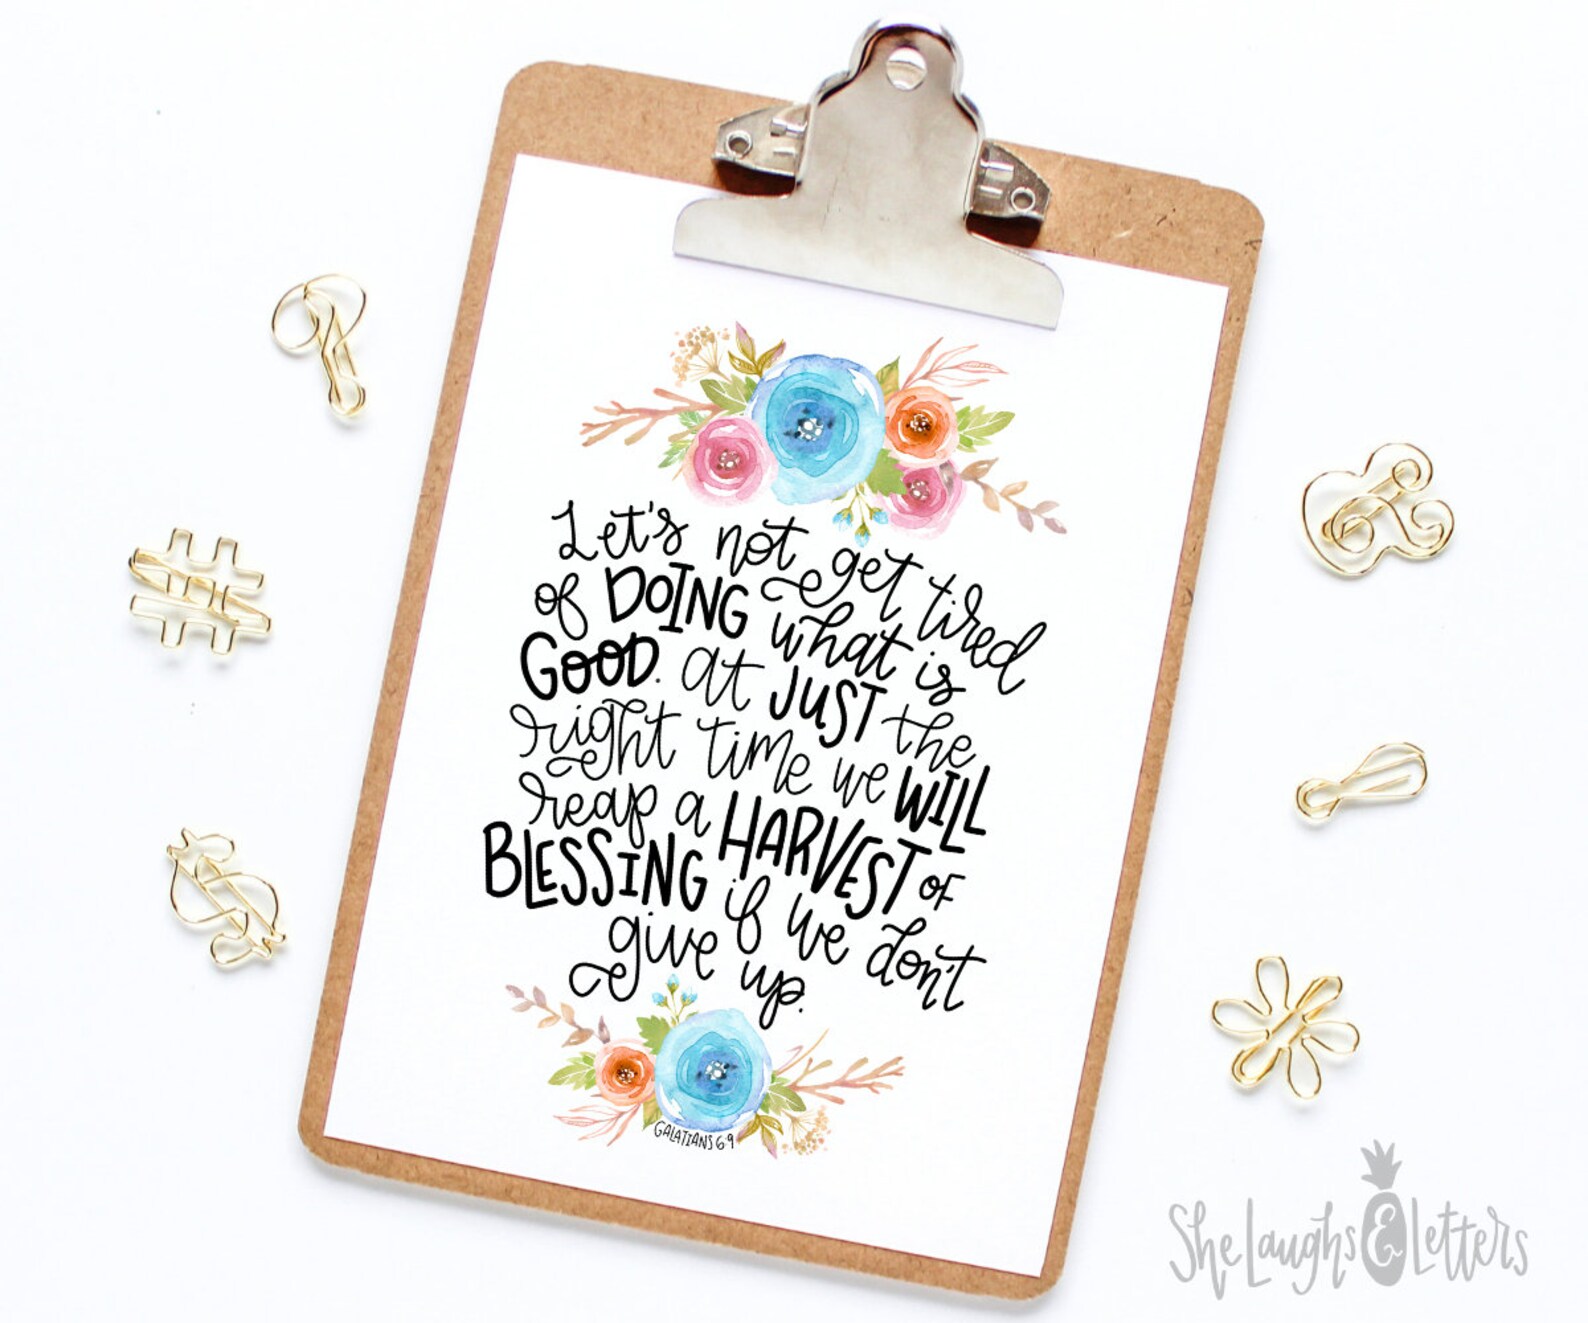 Let's not get tired
of DOING what is
GOOD. at JUST the
right time we WILL
reap a HARVEST OF
BLESSING if we don't
give up.
GALATIANS 6:9
She Laughs & Letters